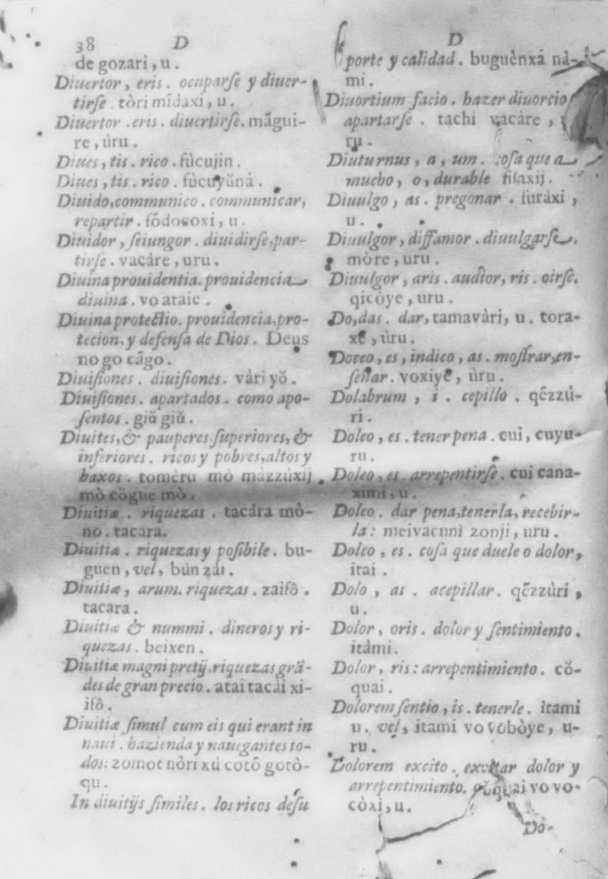 38 D
de gozari, u.
Diuertor, eris. ocuparſe y diuer-
tirſe. tòri midaxi, u.
Diuertor. eris. diuertirſe. mãgui-
re, ùru.
Diues, tis. rico. fùcujin.
Diues, tis. rico. fùcuyŭnà.
Diuido, communico. communicar,
repartir. fódocoxi, u.
Diuidor, ſeiungor. diuidirſe, par-
tirſe. vacàre, uru.
Diuina prouidentia. prouidencia
diuina. vo ataie.
Diuina protectio. prouidencia, pro-
tecion, y defenſa de Dios. Deus
no go cãgo.
Diuiſiones. diuiſiones. vàri yŏ.
Diuiſiones. apartados. como apo-
ſentos. giŭ giŭ.
Diuites, & pauperes ſuperiores, &
inferiores. ricos y pobres, altos y
baxos. tomèru mò màzzùxij
mò cŏgue mò.
Diuitiæ. riquezas. tacára mò-
no. tacara.
Diuitiæ. riquezas y poſibile. bu-
guen, vel, bùn zai.
Diuitiæ, arum. riquezas. zaìfŏ.
tacara.
Diuitiæ & nummi. dineros y ri-
quezas. beixen.
Diuitiæ magni pretij. riquezas grã-
des de gran precio. atai tacài xi-
ifŏ.
Diuitiæ ſimul cum eis qui erant in
naui. hazienda y nauegantes to-
dos: zomot nòri xú cotŏ gotò-
qu.
In diuitijs ſimiles. los ricos deſu
D
porte y calidad. buguènxá nà-
mi.
Diuortium facio. hazer diuorcio
apartarſe. tachi vacàre,
ru.
Diuturnus, a, um. coſa que a
mucho, o, durable fiſaxij.
Diuulgo, as. pregonar. furàxi,
u.
Diuulgor, diffamor. diuulgarſe.
mòre, uru.
Diuulgor, aris. audior, ris. oirſe.
qicòye, uru.
Do, das. dar, tamavàri, u. tora-
xe, ùru.
Doceo, es, indico, as. moſtrar, en-
ſeñar. voxiye, ùru.
Dolabrum, i. cepillo. qẽzzù-
ri.
Doleo, es. tener pena. cui, cuyu-
ru.
Doleo, es. arrepentirſe. cui cana-
ximi, u.
Doleo. dar pena, tenerla, recebir-
la: meivacunì zonji, uru.
Doleo, es. coſa que duele o dolor,
itai.
Dolo, as. acepillar. qẽzzùri,
u.
Dolor, oris. dolor y ſentimiento.
itàmi.
Dolor, ris: arrepentimiento. cŏ-
quai.
Dolorem ſentio, is. tenerle. itami
u. vel, itami vo vobòye, u-
ru.
Dolorem excito. excitar dolor y
arrepentimiento. cŏquai vo vo-
còxi, u.
Do-